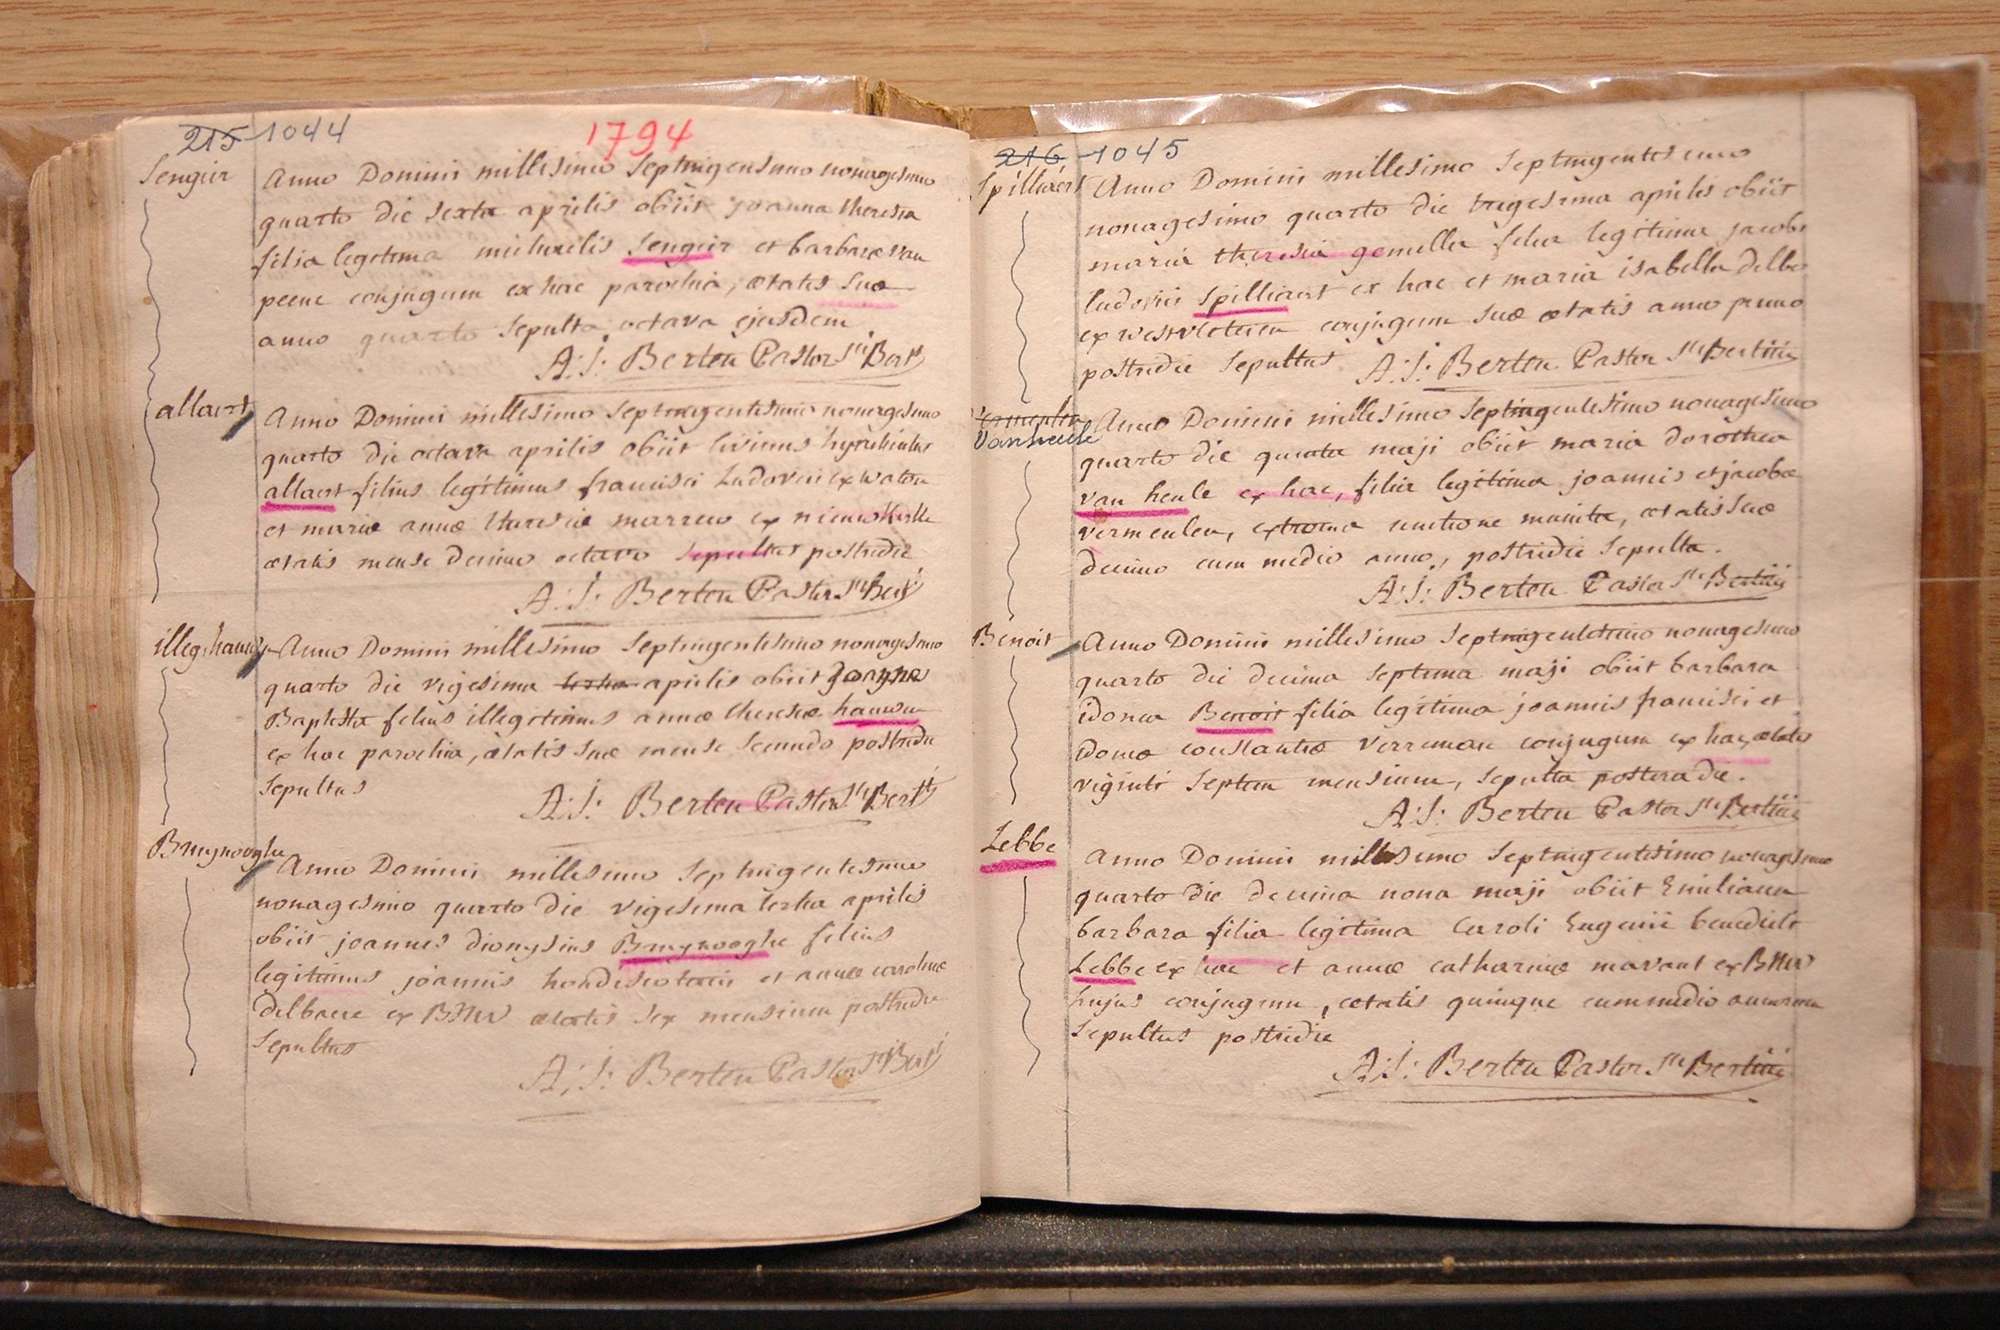 215 1044
1794
Sengier
Anno Domini millesimo Septingentesimo nonagesimo
quarto die sexta aprilis obiit joanna theresia
filia legitima michaelis Sengier et barbaræ van
peene conjugum ex hac parochia, ætatis suæ
anno quarto sepulta octava ejusdem
A: J: Berten Pastor Sti Berti
allaert
Anno Domini millesimo Septingentesimo nonagesimo
quarto die octava aprilis obiit livinus
allaert filius legitimus francisci Ludovici ex waton
et mariæ annæ theresiæ marreu ex
ætatis mense decimo octavo sepultus postridie
A: J: Berten Pastor Sti Berti
illeg: hauw
Anno Domini millesimo Septingentesimo nonagesimo
quarto die vigesima tertia aprilis obiit Joannes
Baptista filius illegitimus annæ theresiæ
ex hac parochia, ætatis suæ mense secundo postridie
sepultus
A: J: Berten Pastor Sti Berti
Bruynooghe
Anno Domini millesimo Septingentesimo
nonagesimo quarto die vigesima tertia aprilis
obiit joannes dionysius Bruynooghe filius
legitimus joannis et annæ carolinæ
delbaere ex BMV ætatis sex mensium postridie
sepultus
A: J: Berten Pastor Sti Berti
216 1045
Spilliaert
Anno Domini millesimo Septingentesimo
nonagesimo quarto die trigesima aprilis obiit
maria theresia gemella filia legitima jacobi
ludovici Spilliaert ex hac et maria isabella delbo
ex westvleteren conjugum suæ ætatis anno primo
postridie sepultus A: J: Berten Pastor Sti Bertini
Vermeulen
Vanheule
Anno Domini millesimo Septingentesimo nonagesimo
quarto die quinta maji obiit maria dorothea
van heule ex hac, filia legitima joannis et jacobæ
vermeulen, extrema unctione munita, ætatis suæ
decimo cum medio anno, postridie sepulta.
A: J: Berten Pastor Sti Bertini
Benoit
Anno Domini millesimo Septingentesimo nonagesimo
quarto die decima septima maji obiit barbara
idonea Benoit filia legitima joannis francisci et
constantiæ conjugum ex hac, ætatis
viginti septem mensium, sepulta postera die.
A: J: Berten Pastor Sti Bertini
Lebbe
Anno Domini millesimo Septingentesimo nonagesimo
quarto die decima nona maji obiit Emiliana
barbara filia legitima Caroli Eugenii benedicti
Lebbe ex hac et annæ catharinæ mavaut ex BMV
hujus conjugum, ætatis quinque cum medio annorum
sepultus postridie
A: J: Berten Pastor Sti Bertini